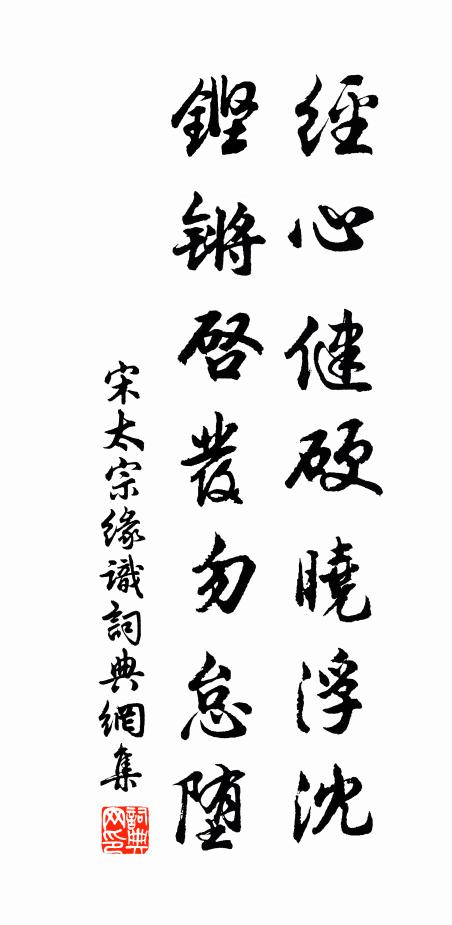 經心健硬曉浮沈
鏗鏘啓發勿怠墮
宋太宗緣識詞典網集
詞典网印